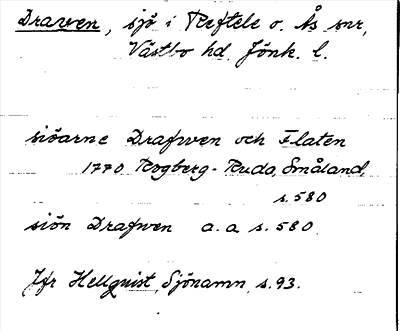 Draven, sjö i Reftele o. Ås snr,
Västbo hd. Jönk. l.
siöarne Drafwen och Flaten
1770 Rogberg-Ruda, Småland,
s. 580
siön Drafwen a.a s. 580.
Jfr Hellquist, Sjönamn, s. 93.